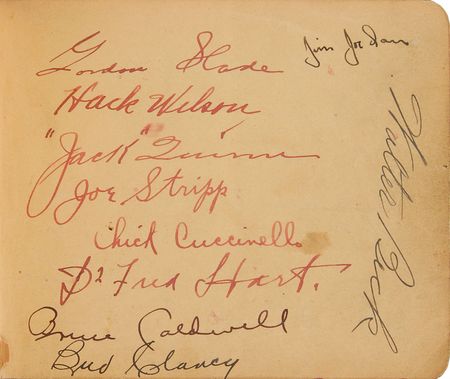 Jim Jordan
Gordon Slade
Hack Wilson
"Jack" Quinn
Joe Stripp
Chick Cuccinello
Dr Fred Hart.
Bruce Caldwell
Bud Clancy
Walter Beck